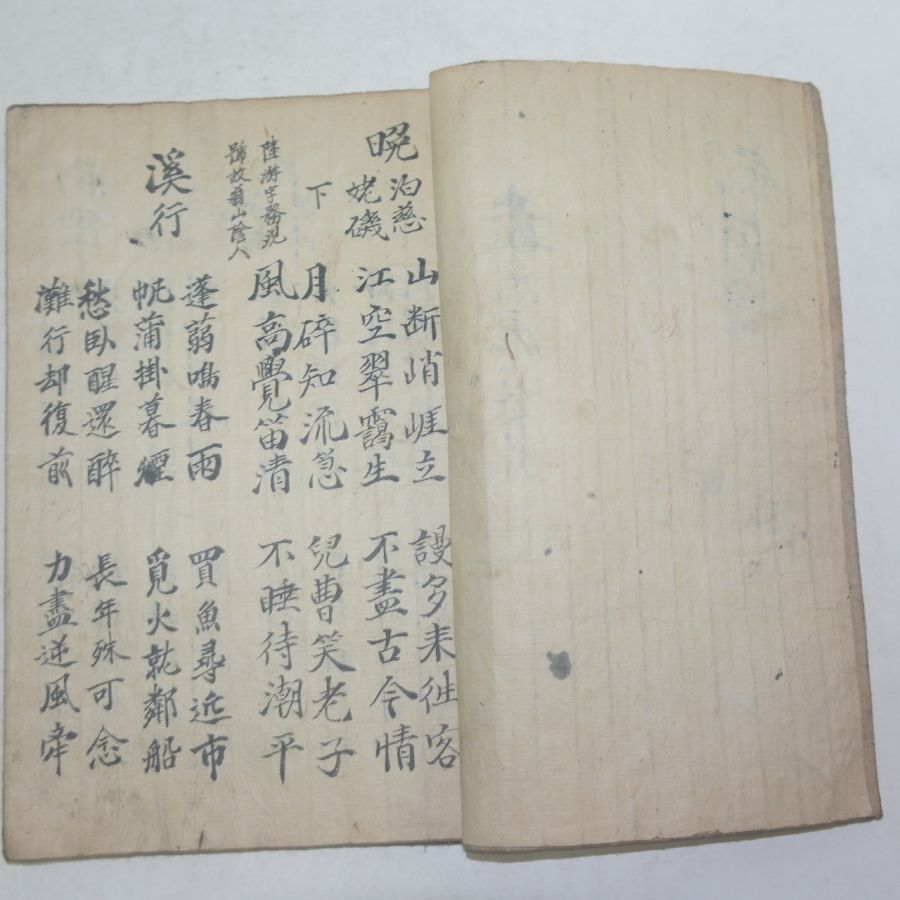 晩泊慈
姥磯
下
陸游字務觀
號放翁山陰人
山断峭崕立
江空翠靄生
謾多来徃客
不盡古今情
月碎知流急
風高覺笛清
兒曹笑老子
不睡待潮平
溪行
蓬蒻鳴春雨
帆蒲掛暮煙
買魚尋近市
覓火就鄰船
愁臥醒還醉
灘行却復前
長年殊可念
力盡逆風牽